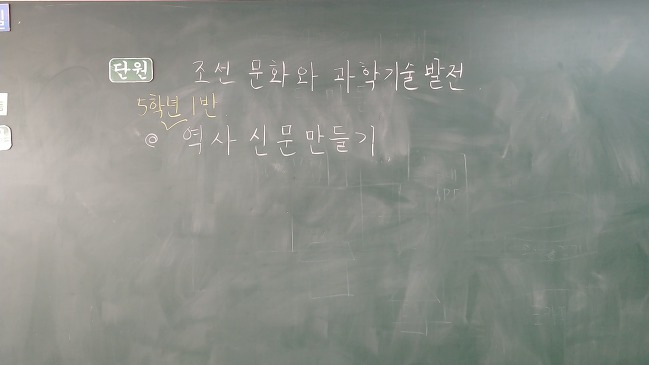 단원 조선 문화와 과학기술 발전
5학년 1반
@ 역사 신문만들기